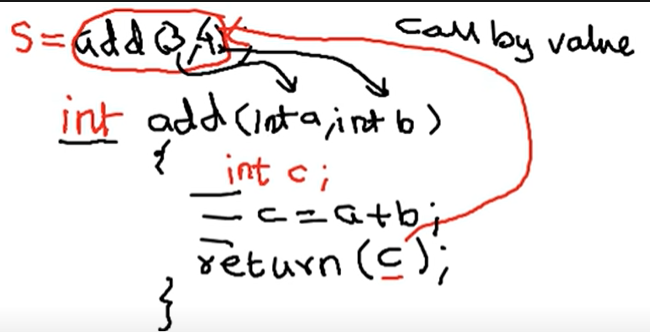 S = add(3,4) call by value
int add(int a, int b)
{
int c;
c = a + b;
return (c);
}